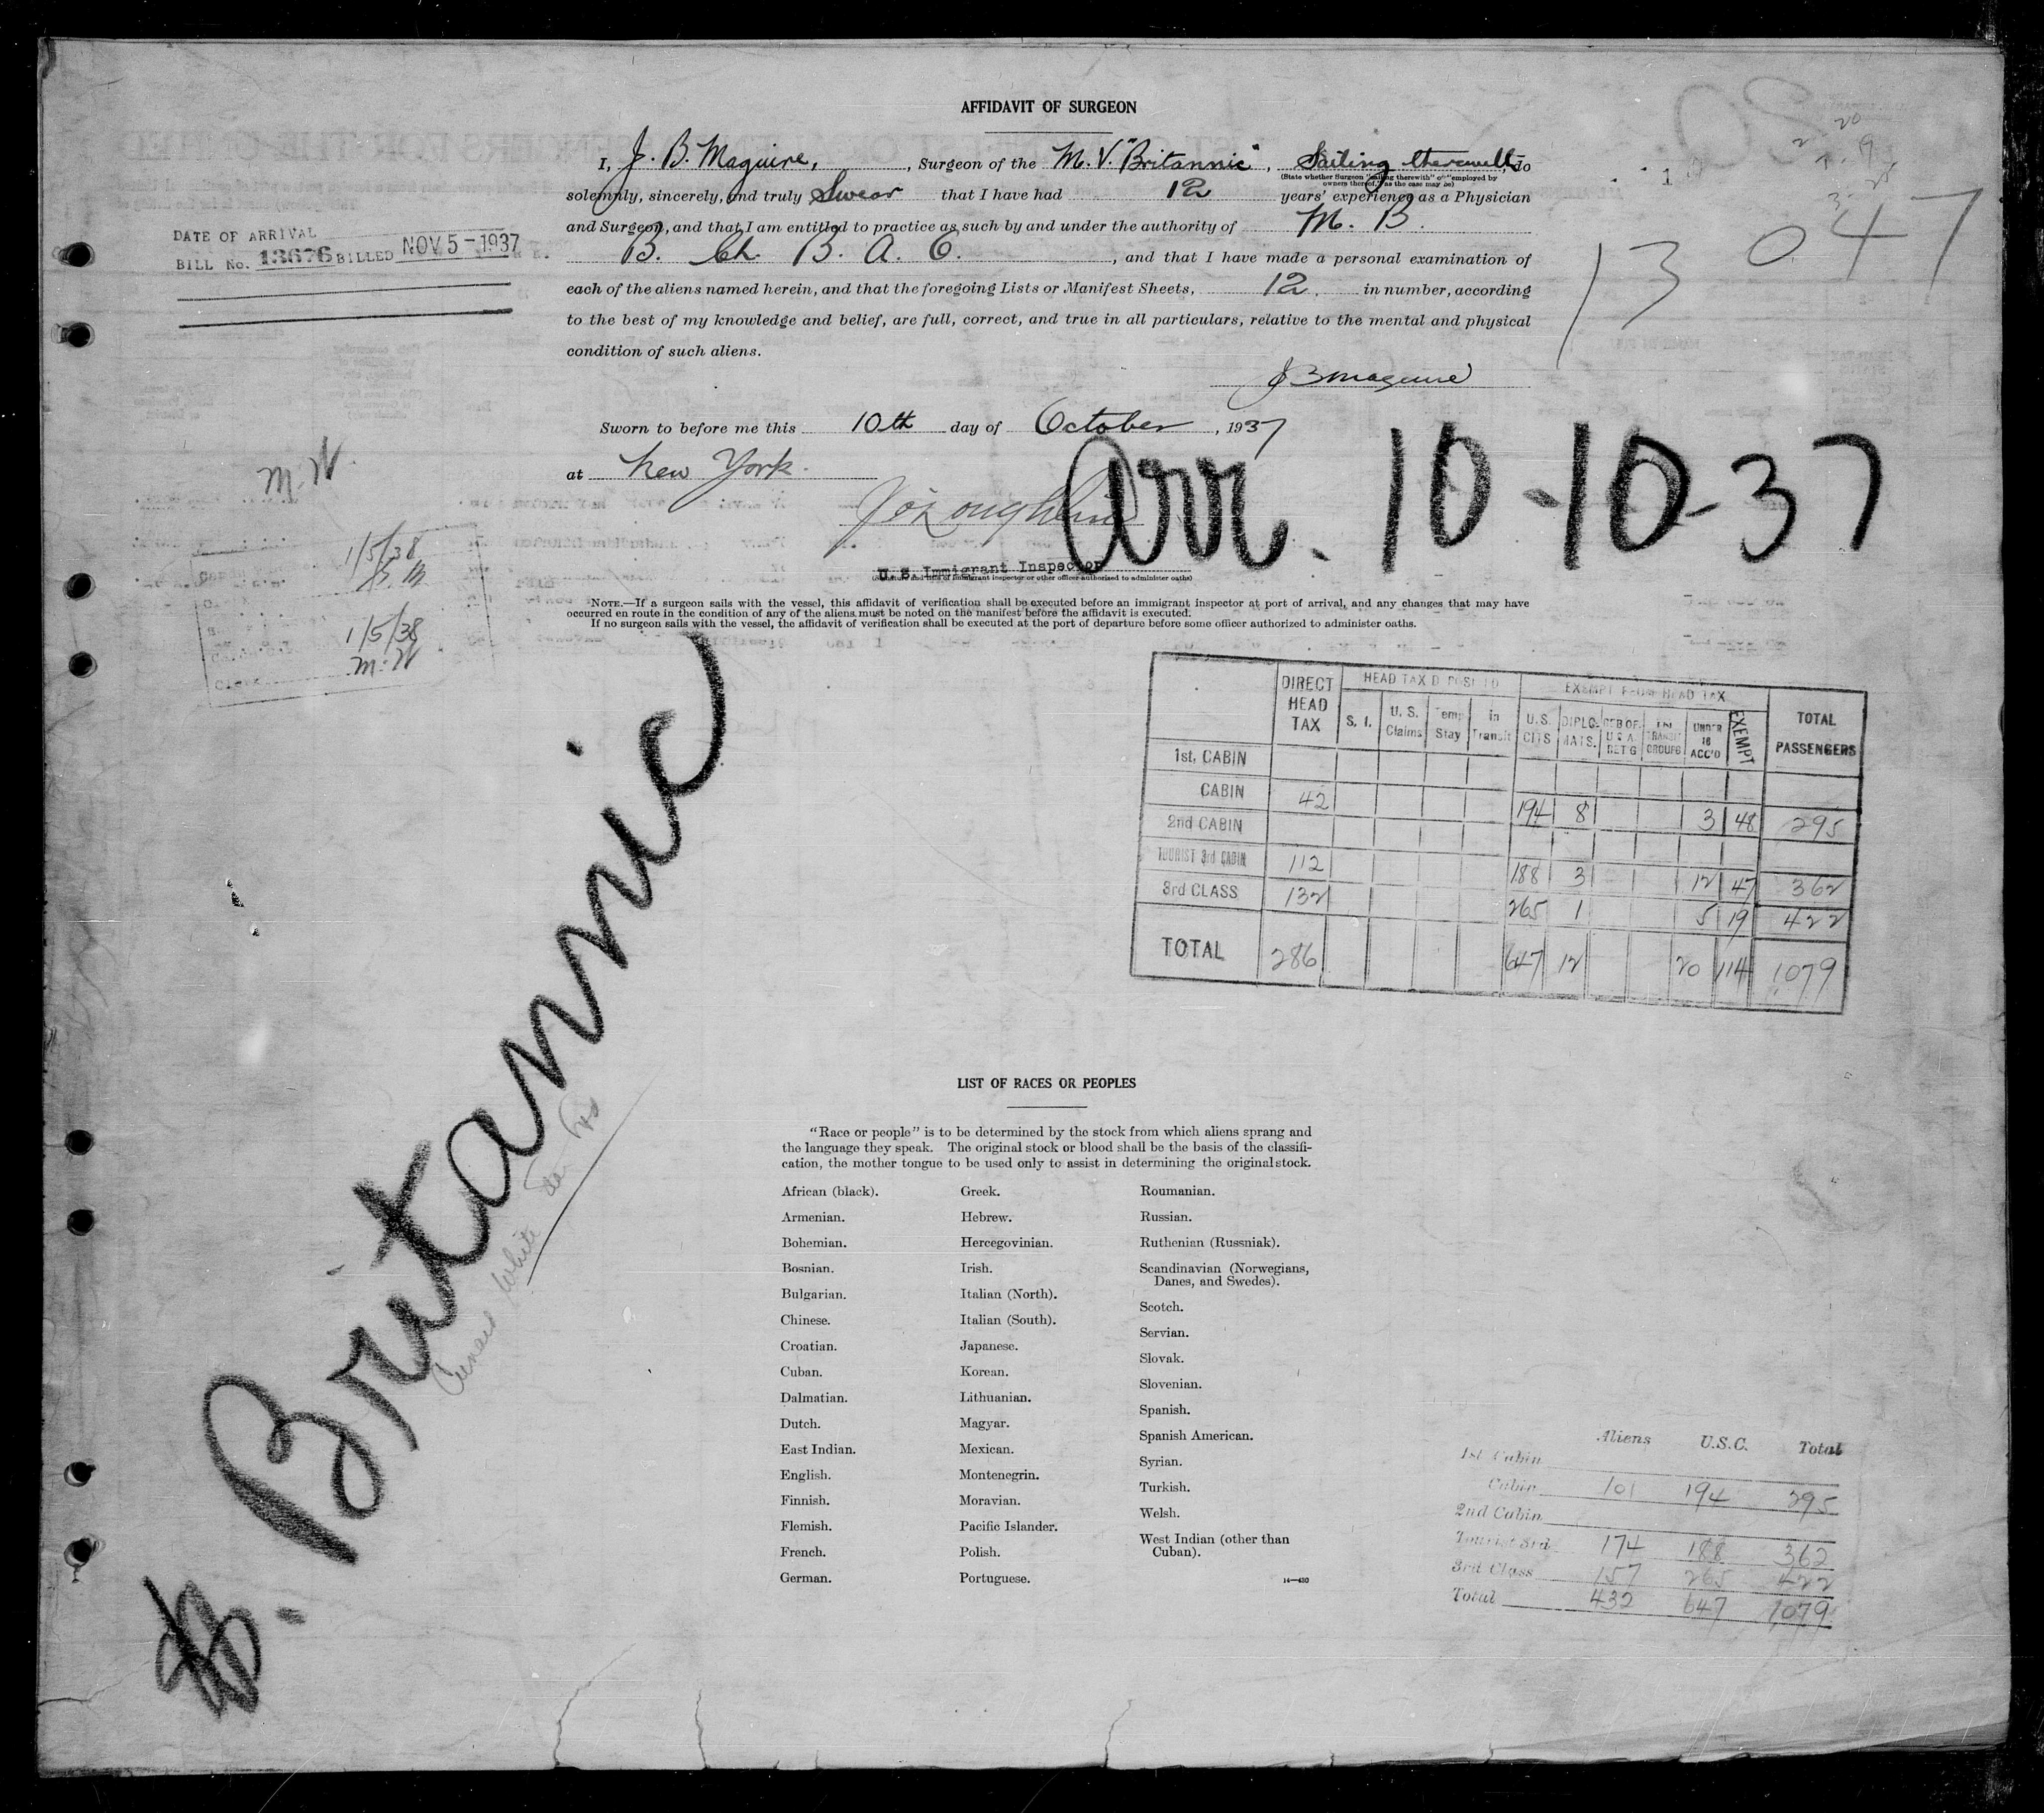 AFFIDAVIT OF SURGEON
I, J. B. Maguire, , Surgeon of the M. V. "Britannic" , Sailing therewith, do
(State whether Surgeon "sailing therewith" or "employed by
owners thereof," as the case may be)
solemnly, sincerely, and truly Swear that I have had 12 years' experience as a Physician
and Surgeon, and that I am entitled to practice as such by and under the authority of M. B.
B. Ch. B. A. O. , and that I have made a personal examination of
each of the aliens named herein, and that the foregoing Lists or Manifest Sheets, 12. in number, according
to the best of my knowledge and belief, are full, correct, and true in all particulars, relative to the mental and physical
condition of such aliens.
J B Maguire
DATE OF ARRIVAL
BILL No. 13676 BILLED NOV 5 - 1937
13 047
Sworn to before me this 10th day of October , 1937
at New York.
Arr. 10-10-37
U. S. Immigrant Inspector
(Signature and title of immigrant inspector or other officer authorized to administer oaths)
M.W.
1/5/38
1/5/38
M.W
NOTE.—If a surgeon sails with the vessel, this affidavit of verification shall be executed before an immigrant inspector at port of arrival, and any changes that may have
occurred en route in the condition of any of the aliens must be noted on the manifest before the affidavit is executed.
If no surgeon sails with the vessel, the affidavit of verification shall be executed at the port of departure before some officer authorized to administer oaths.
DIRECT HEAD TAX HEAD TAX DEPOSITED EXEMPT FROM HEAD TAX TOTAL PASSENGERS
S. I. U. S. Claims Temp Stay in Transit U.S. CITS DIPLO-MATS. U S A RET'G TRANSIT GROUPS UNDER 16 ACC'D EXEMPT
1st, CABIN
CABIN 42 194 8 3 48 295
2nd CABIN
TOURIST 3rd CABIN 112 188 3 12 47 362
3rd CLASS 132 265 1 5 19 422
TOTAL 286 647 12 20 114 1079
Britannic
Cunard White
LIST OF RACES OR PEOPLES
"Race or people" is to be determined by the stock from which aliens sprang and
the language they speak. The original stock or blood shall be the basis of the classifi-
cation, the mother tongue to be used only to assist in determining the original stock.
African (black).
Armenian.
Bohemian.
Bosnian.
Bulgarian.
Chinese.
Croatian.
Cuban.
Dalmatian.
Dutch.
East Indian.
English.
Finnish.
Flemish.
French.
German.
Greek.
Hebrew.
Hercegovinian.
Irish.
Italian (North).
Italian (South).
Japanese.
Korean.
Lithuanian.
Magyar.
Mexican.
Montenegrin.
Moravian.
Pacific Islander.
Polish.
Portuguese.
Roumanian.
Russian.
Ruthenian (Russniak).
Scandinavian (Norwegians,
Danes, and Swedes).
Scotch.
Servian.
Slovak.
Slovenian.
Spanish.
Spanish American.
Syrian.
Turkish.
Welsh.
West Indian (other than
Cuban).
14—430
Aliens U.S.C. Total
1st Cabin
Cabin 101 194 295
2nd Cabin
Tourist 3rd 174 188 362
3rd Class 157 265 422
Total 432 647 1079